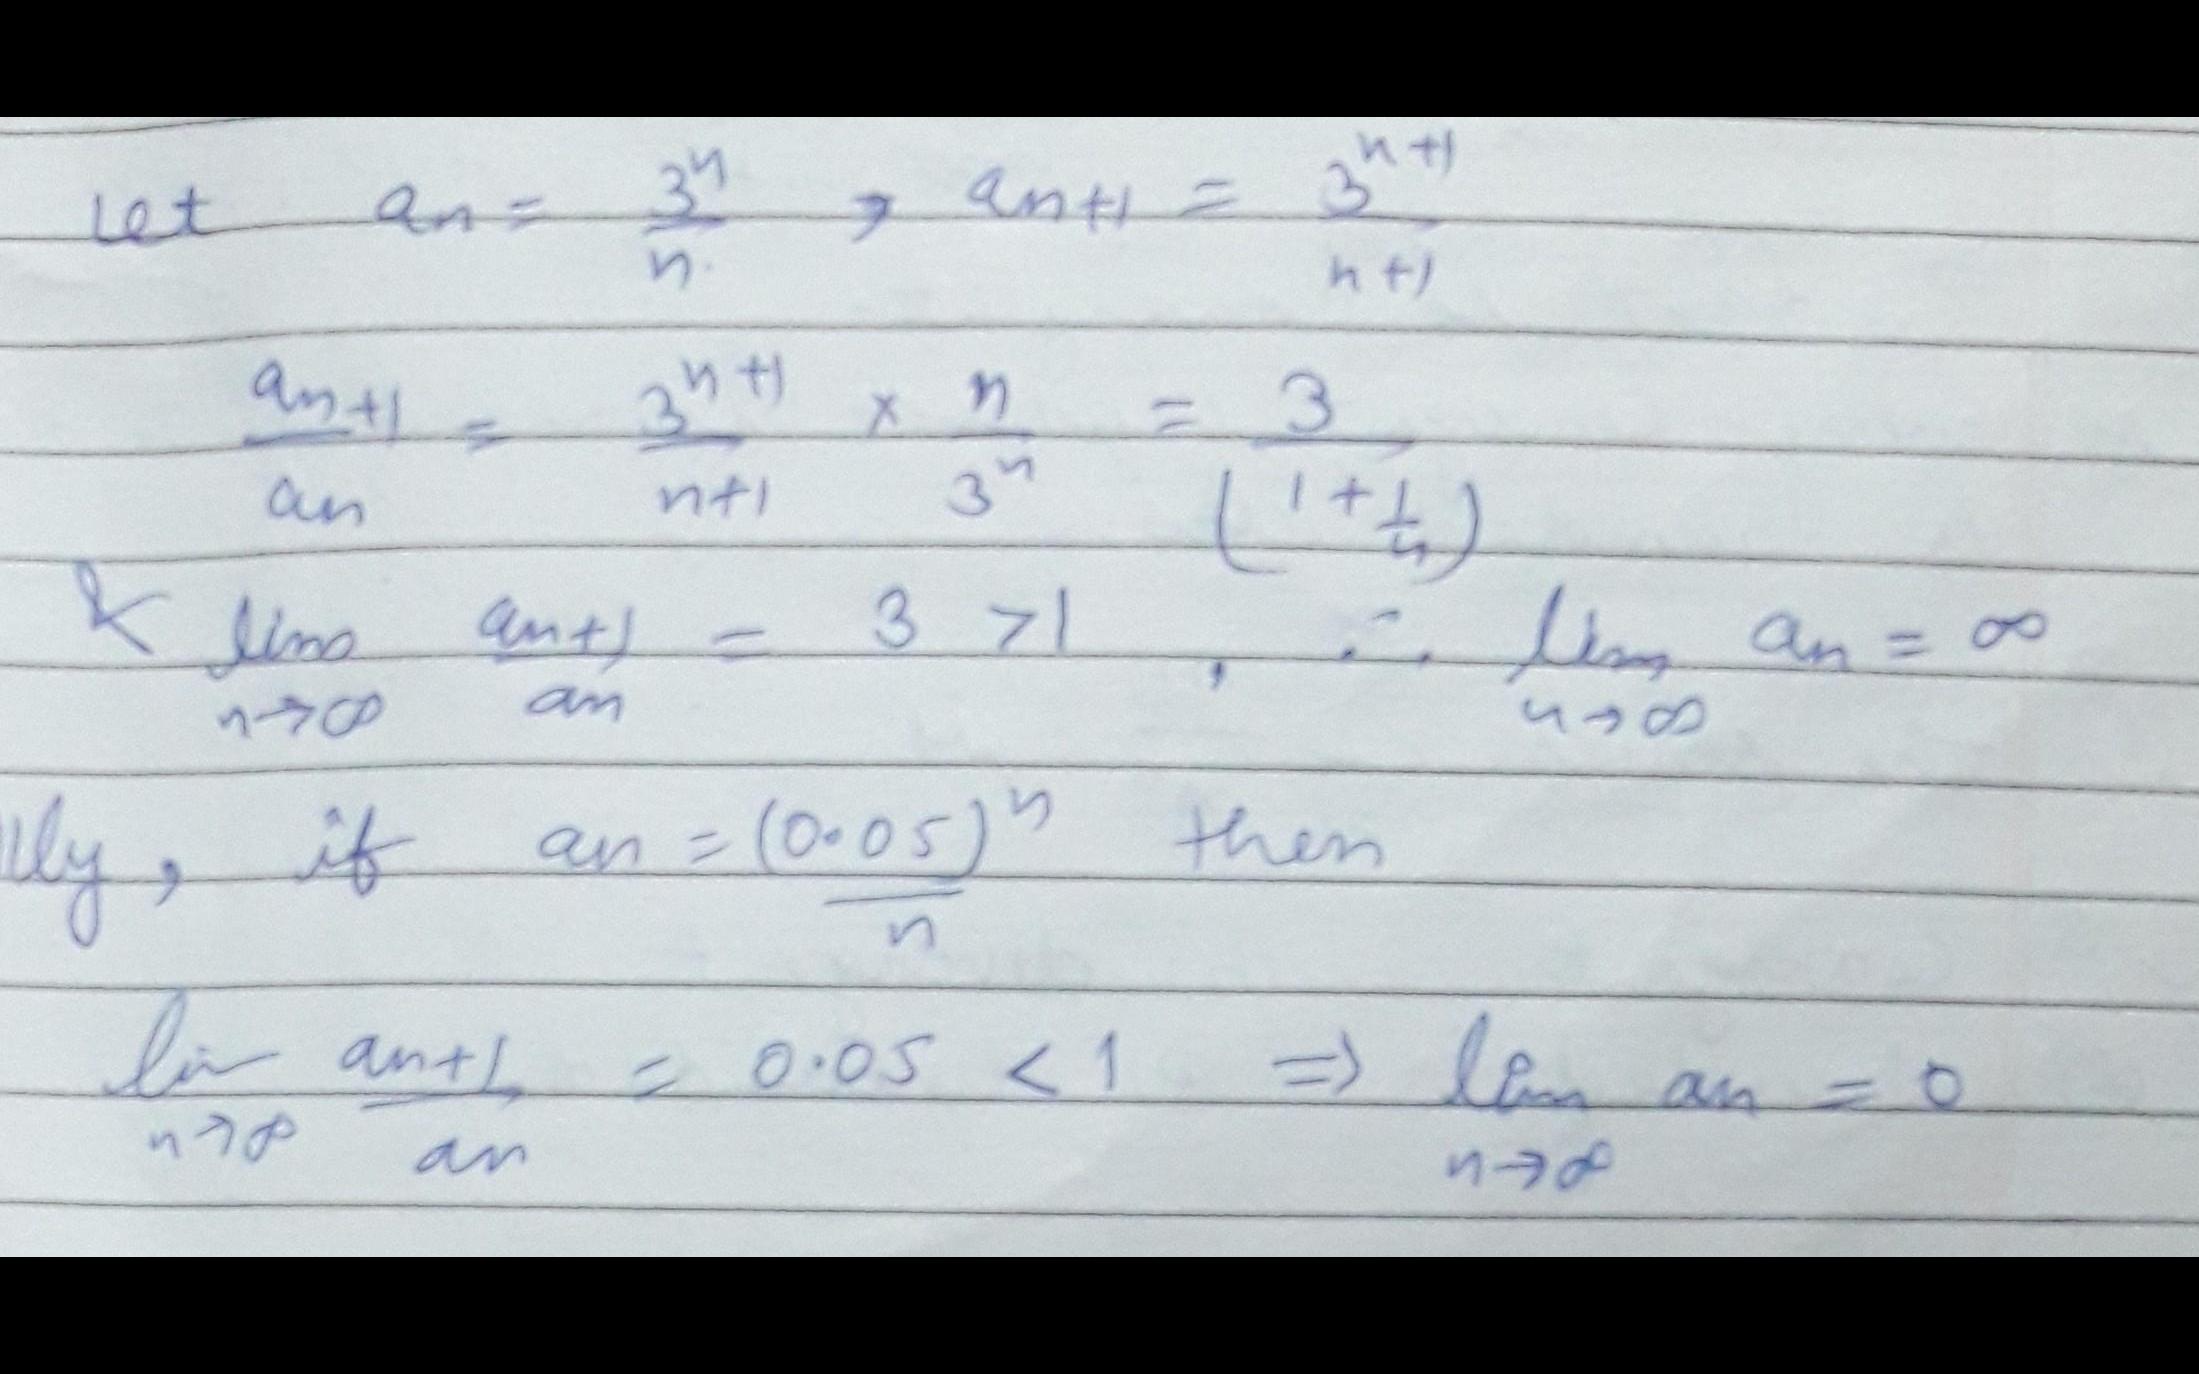 Let an = 3^n / n , an+1 = 3^(n+1) / n+1
an+1 / an = 3^(n+1) / n+1 × n / 3^n = 3 / (1 + 1/n)
& lim n→∞ an+1 / an = 3 > 1 , ∴ lim n→∞ an = ∞
lly, if an = (0.05)^n / n then
lim n→∞ an+1 / an = 0.05 < 1 ⇒ lim n→∞ an = 0